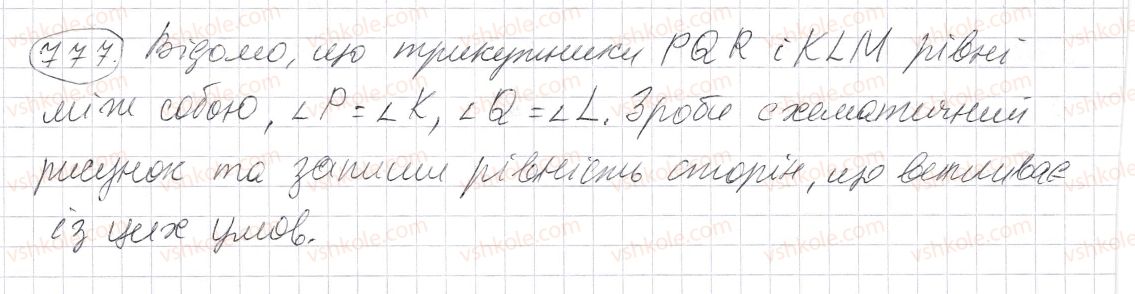 777. Відомо, що трикутники PQR і KLM рівні
між собою, ∠P = ∠K, ∠Q = ∠L. Зроби схематичний
рисунок та запиши рівність сторін, що випливає
із цих умов.